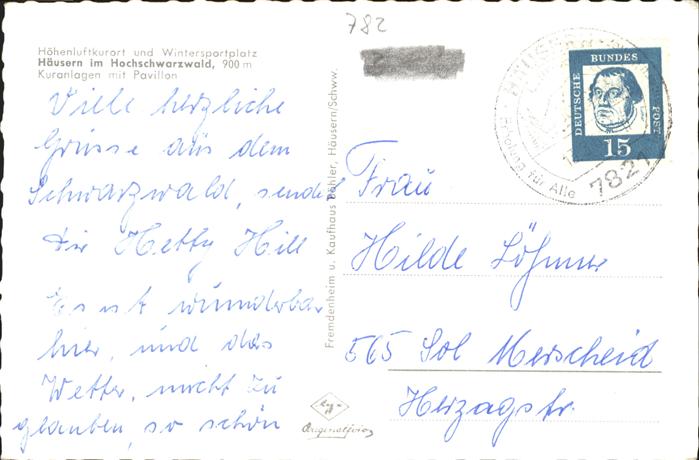 782
Höhenluftkurort und Wintersportplatz
Häusern im Hochschwarzwald, 900 m
Kuranlagen mit Pavillon
Viele herzliche
Grüsse aus dem
Schwarzwald, sendet
Dir Hetty Hill
Es ist wunderbar
hier, und das
Wetter, nicht zu
glauben, so schön
Fremdenheim u. Kaufhaus Böhler, Häusern/Schww.
Originalfoto
DEUTSCHE
BUNDES
POST
15
HÄUSERN
Erholung für Alle
7821
Frau
Hilde Löhmer
565 Sol Merscheid
Herzogstr.